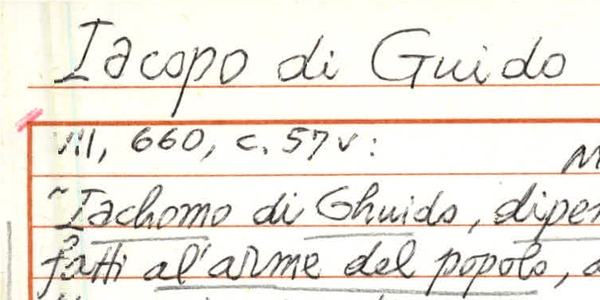 Iacopo di Guido
VII, 660, c. 57v:
"Iachomo di Ghuido, dipen
fatti al'arme del popolo,